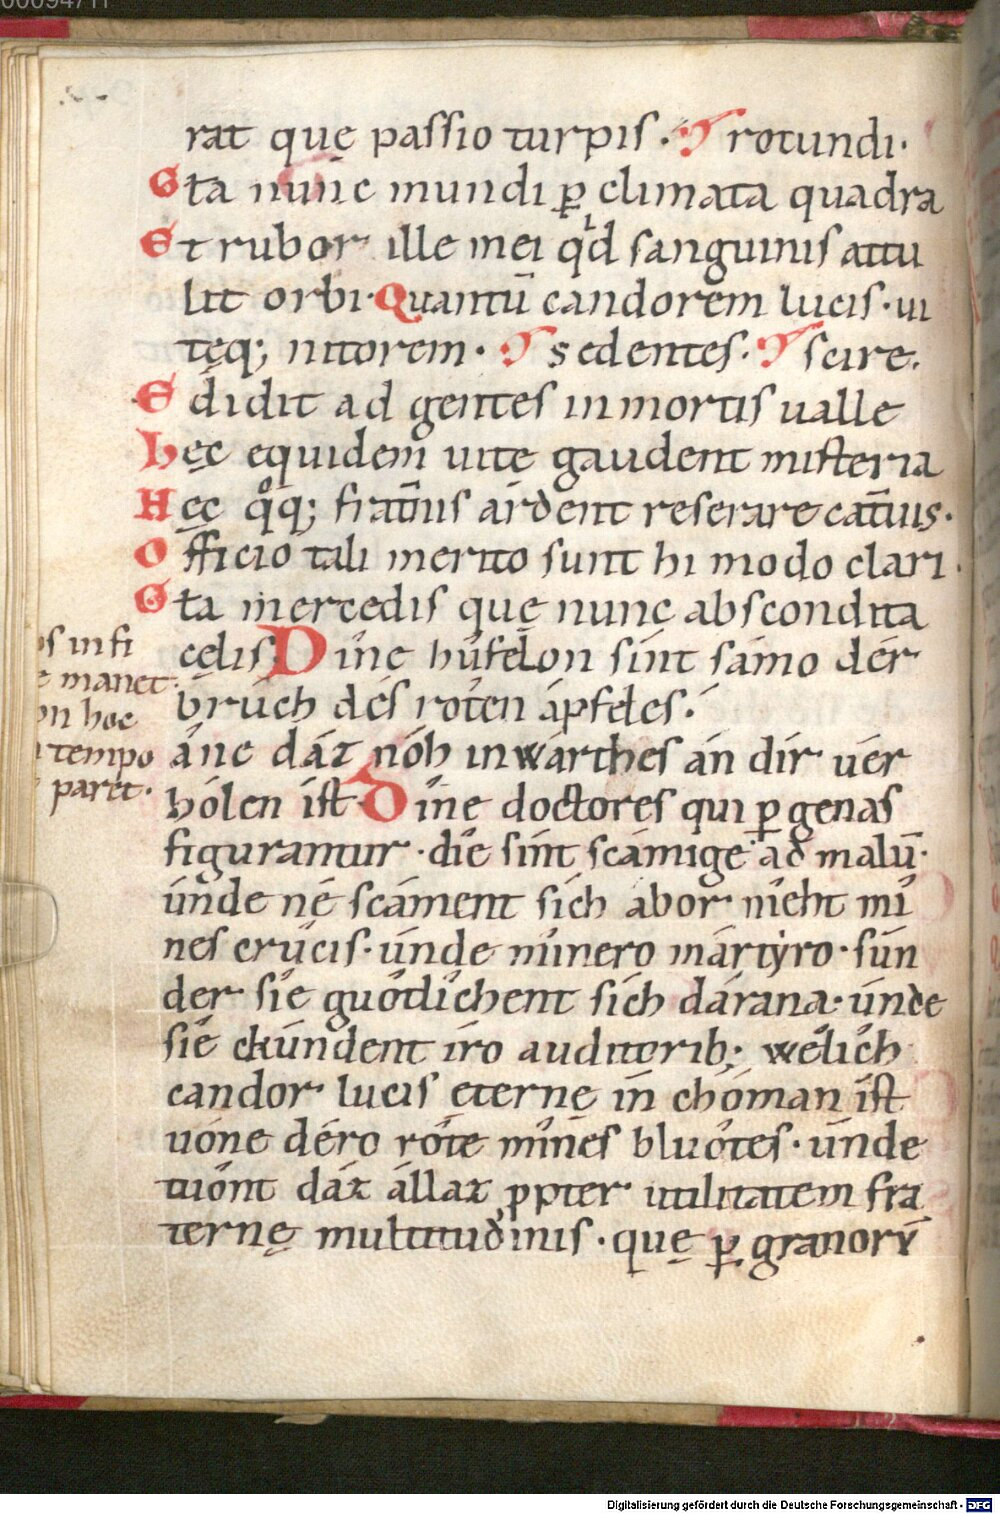 rat quę passio turpis. rotundi.
Eta nunc mundi p̱ climata quadra
Et rubor ille mei qd̍ sanguinis attu
lit orbi. Quantū candorem lucis. ui
tęq; nitorem. sedentes. scire.
Edidit ad gentes in mortis ualle
Hęc equidem uitę gaudent misteria
Hęc qͦq; frat̅nis ardent reserare cat̅uis.
Officio tali merito sunt hi modo clari.
Eta mercedis quę nunc abscondita
cęlis Díne hûfelon sínt sámo dér
brúch dés róten ápfeles.
âne dáz nóh inwárthes án dír uér
hólen íst. Díne doctores qui p̱ genas
figurantur. die sínt scámige ad malū.
únde né scáment sích abor nieht mí
nes crucis. únde mínero mártyro. sún
der sie guótlichent sích dárana. únde
sié ckúndent íro auditorib; wélich
candor lucis ęternę ín chóman íst
uóne déro róte mínes bluôtes. únde
tuônt dáz állaz ꝓpter utilitatem fra
ternę multitudinis. quę p̱ granorū
s in fi
manet.
n hoc
tempo
paret.
Digitalisierung gefördert durch die Deutsche Forschungsgemeinschaft - DFG